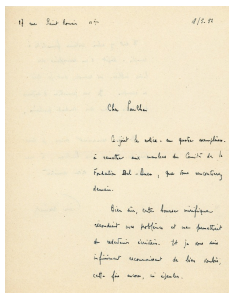 17 rue Saint Louis
8/5/52
Cher Ponthier
Ci-joint la notice - en quatre exemplaires -
à remettre aux membres du Comité de la
Fondation Del-Duca, que vous rencontrerez
demain.
Bien sûr, cette bourse magnifique
résoudrait nos problèmes et me permettrait
de
Et je vous suis
infiniment reconnaissant de bien vouloir,
cette fois encore,